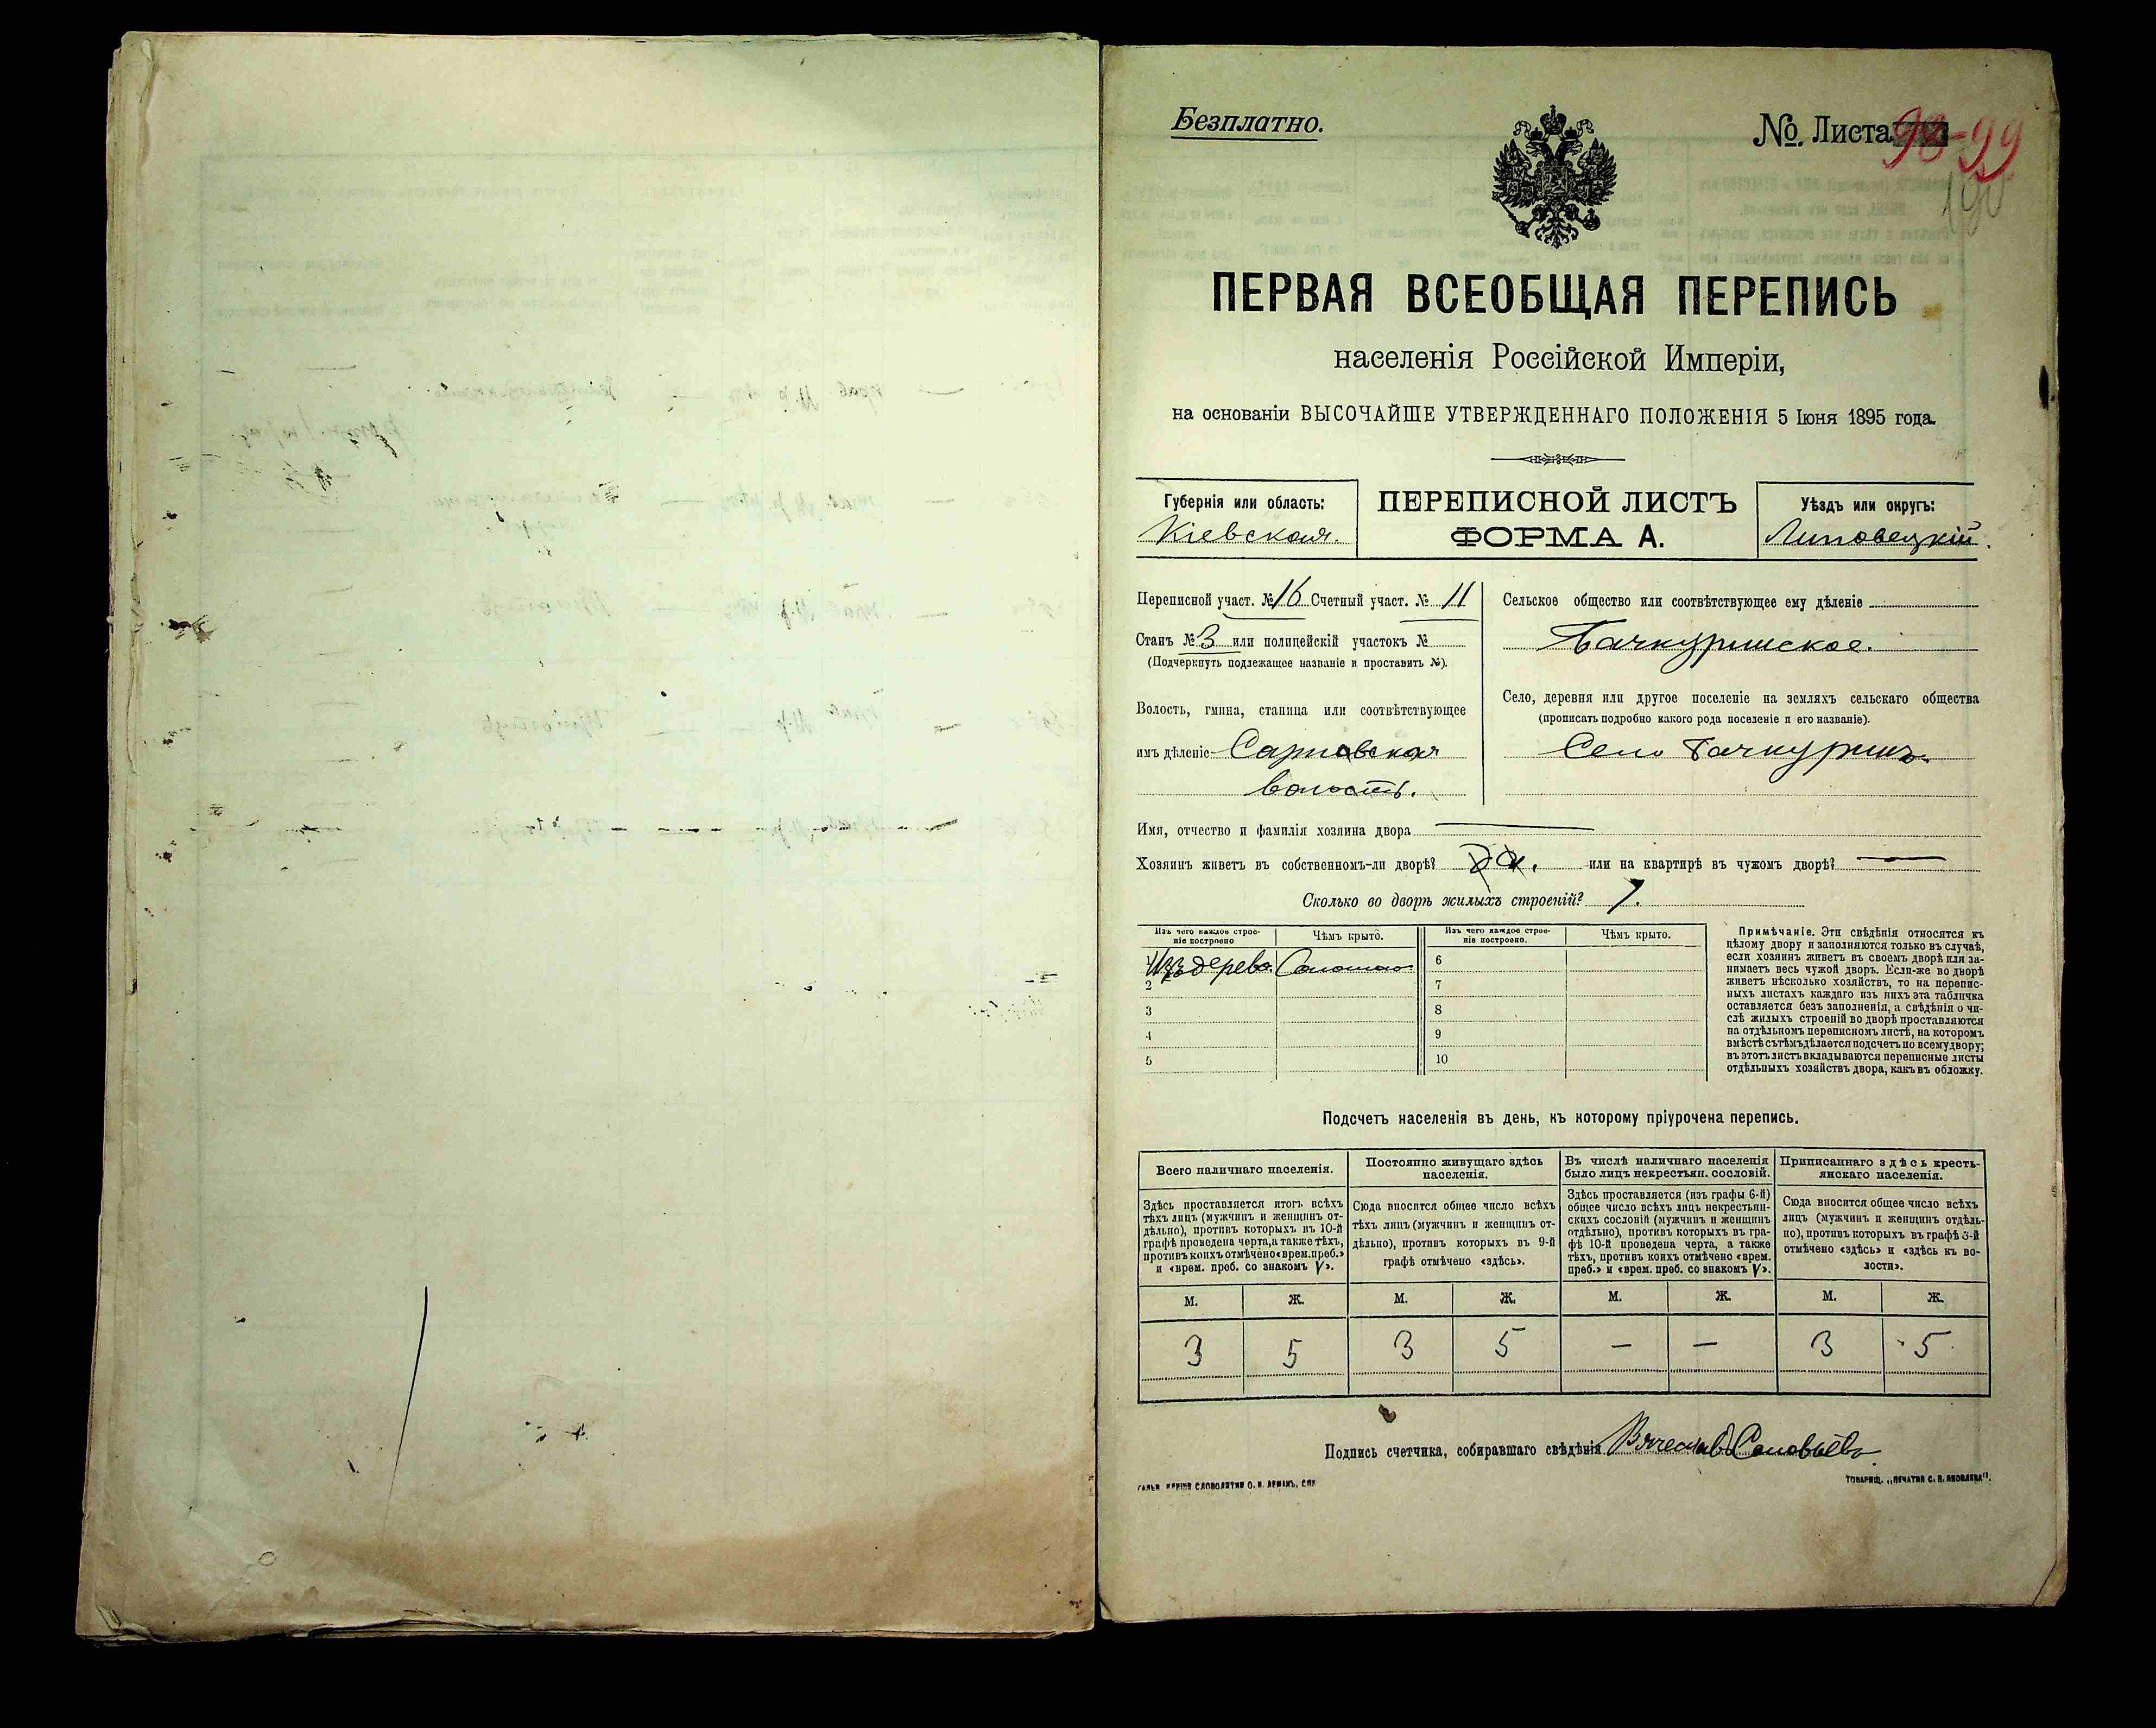 Безплатно.
№. Листа 98-99
190
ПЕРВАЯ ВСЕОБЩАЯ ПЕРЕПИСЬ
населенія Россійской Имперіи,
на основаніи ВЫСОЧАЙШЕ УТВЕРЖДЕННАГО ПОЛОЖЕНІЯ 5 Іюня 1895 года.
Губернія или область:
Кіевская.
ПЕРЕПИСНОЙ ЛИСТЪ
ФОРМА А.
Уѣздъ или округъ:
Липовецкій.
Переписной участ. № 16 Счетный участ. № 11
Станъ № 3 или полицейскій участокъ №
(Подчеркнуть подлежащее названіе и проставить №).
Волость, гмина, станица или соотвѣтствующее
имъ дѣленіе Сарновская
волость.
Сельское общество или соотвѣтствующее ему дѣленіе
Бачкуринское.
Село, деревня или другое поселеніе на земляхъ сельскаго общества
(прописать подробно какого рода поселеніе и его названіе).
Село Бачкуринъ.
Имя, отчество и фамилія хозяина двора —
Хозяинъ живетъ въ собственномъ-ли дворѣ? да. или на квартирѣ въ чужомъ дворѣ? —
Сколько во дворѣ жилыхъ строеній? 1.
Изъ чего каждое строе-
ніе построено
Чѣмъ крыто.
Изъ чего каждое строе-
ніе построено.
Чѣмъ крыто.
1 Изъ дерева. Соломою
2
3
4
5
6
7
8
9
10
Примѣчаніе. Эти свѣдѣнія относятся къ
цѣлому двору и заполняются только въ случаѣ,
если хозяинъ живетъ въ своемъ дворѣ или за-
нимаетъ весь чужой дворъ. Если-же во дворѣ
живетъ нѣсколько хозяйствъ, то на перепис-
ныхъ листахъ каждаго изъ нихъ эта табличка
оставляется безъ заполненія, а свѣдѣнія о чи-
слѣ жилыхъ строеній во дворѣ проставляются
на отдѣльномъ переписномъ листѣ, на которомъ
вмѣстѣ съ тѣмъ дѣлается подсчетъ по всему двору;
въ этотъ листъ вкладываются переписные листы
отдѣльныхъ хозяйствъ двора, какъ въ обложку.
Подсчетъ населенія въ день, къ которому пріурочена перепись.
Всего наличнаго населенія.
Здѣсь проставляется итогъ всѣхъ
тѣхъ лицъ (мужчинъ и женщинъ от-
дѣльно), противъ которыхъ въ 10-й
графѣ проведена черта, а также тѣхъ,
противъ коихъ отмѣчено «врем. преб.»
и «врем. преб. со знакомъ V».
Постоянно живущаго здѣсь
населенія.
Сюда вносится общее число всѣхъ
тѣхъ лицъ (мужчинъ и женщинъ от-
дѣльно), противъ которыхъ въ 9-й
графѣ отмѣчено «здѣсь».
Въ числѣ наличнаго населенія
было лицъ некрестьян. сословій.
Здѣсь проставляется (изъ графы 6-й)
общее число всѣхъ лицъ некрестьян-
скихъ сословій (мужчинъ и женщинъ
отдѣльно), противъ которыхъ въ гра-
фѣ 10-й проведена черта, а также
тѣхъ, противъ коихъ отмѣчено «врем.
преб.» и «врем. преб. со знакомъ V».
Приписаннаго здѣсь кресть-
янскаго населенія.
Сюда вносится общее число всѣхъ
лицъ (мужчинъ и женщинъ отдѣль-
но), противъ которыхъ въ графѣ 8-й
отмѣчено «здѣсь» и «здѣсь къ во-
лости».
М. Ж. М. Ж. М. Ж. М. Ж.
3 5 3 5 — — 3 5
Подпись счетчика, собиравшаго свѣдѣнія Вячеславъ Соловьёвъ.
СЛОВОЛИТНИ О. И. ЛЕМАНЪ, СПБ
ТОВАРИЩ. „ПЕЧАТНЯ С. П. ЯКОВЛЕВА".